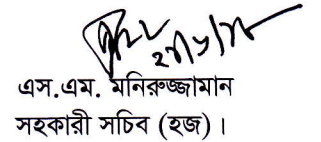 এস.এম. মনিরুজ্জামান
সহকারী সচিব (হজ)।